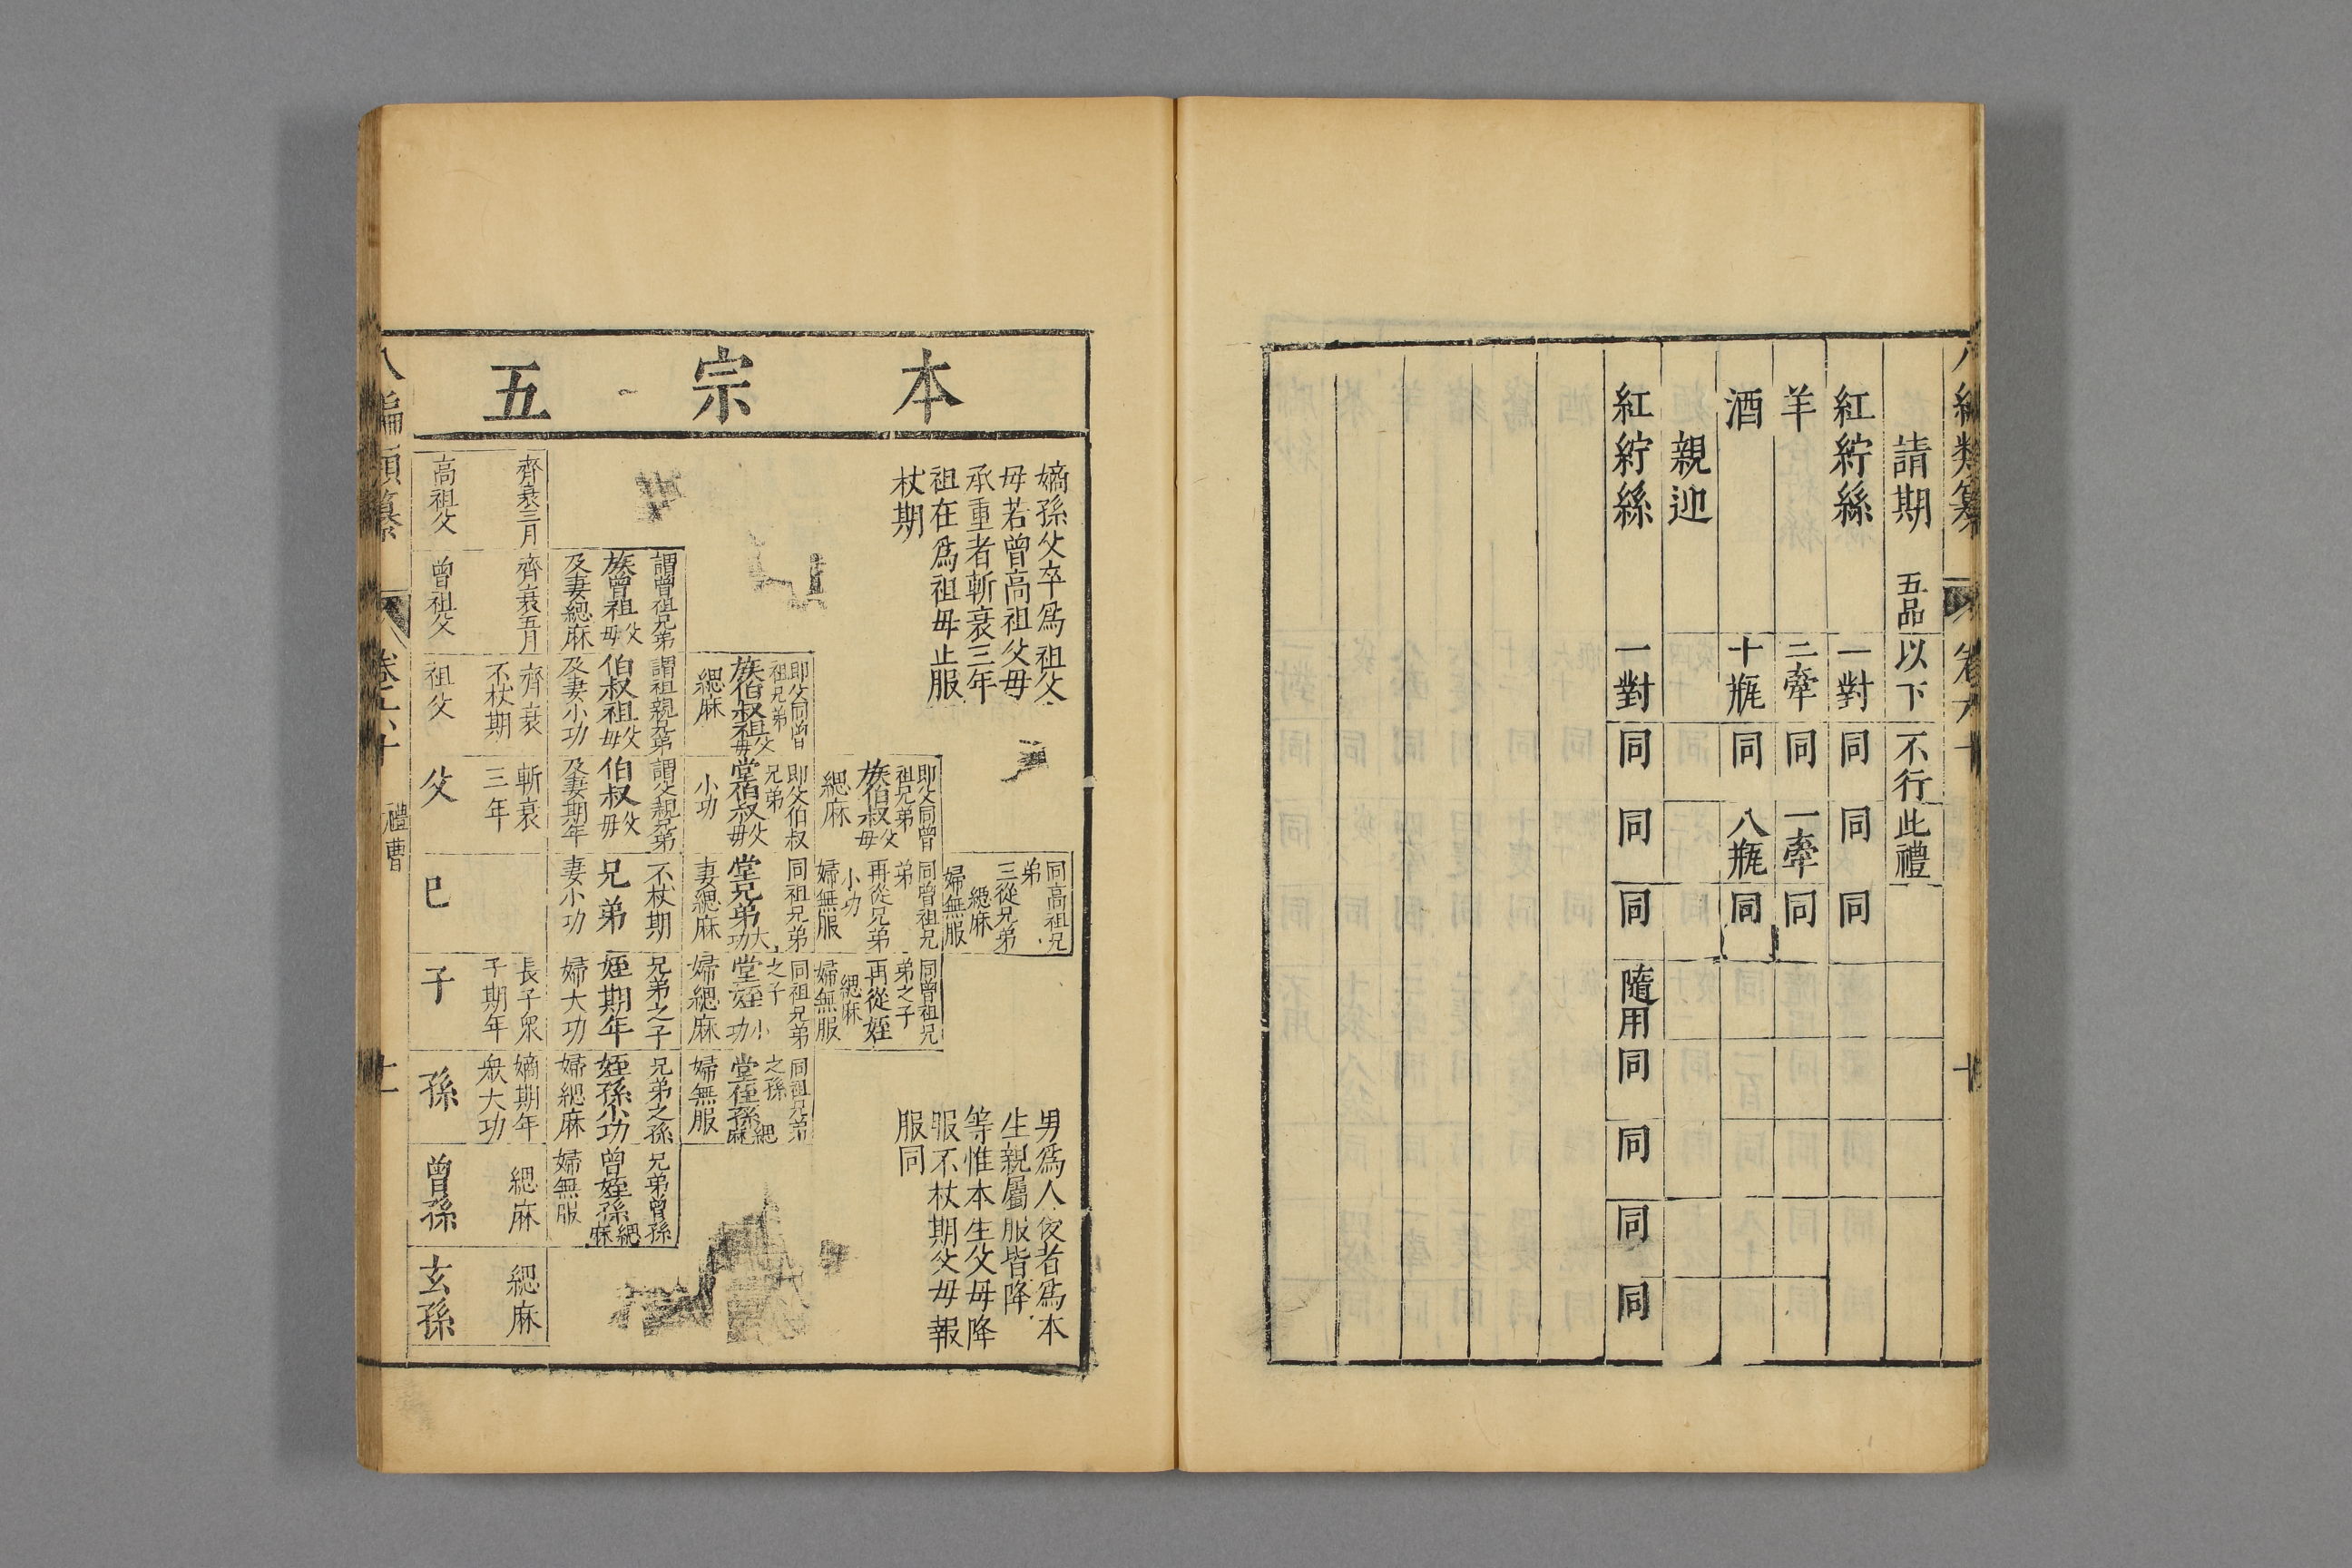 請期 五品以下不行此禮
紅紵絲 一對 同 同 同
羊 二牽 同 一牽 同
酒 十瓶 同 八瓶 同
親迎
紅紵絲 一對 同 同 同 隨用 同 同 同 同
本宗五
嫡孫父卒爲祖父
母若曾高祖父母
承重者斬衰三年
祖在爲祖母止服
杖期
男爲人後者爲本
生親屬服皆降
等惟本生父母降
服不杖期父母報
服同
同高祖兄
弟
三從兄弟
緦麻
婦無服
即父同曾
祖兄弟
族伯叔父母
緦麻
同曾祖兄
弟
再從兄弟
小功
婦無服
同曾祖兄
弟之子
再從姪
緦麻
婦無服
即父同曾
祖兄弟
族伯叔祖父母
緦麻
即父伯叔
兄弟
堂伯叔父母
小功
同祖兄弟
堂兄弟大功
妻緦麻
同祖兄弟
之子
堂姪小功
婦緦麻
同祖兄弟
之孫
堂姪孫緦麻
婦無服
謂曾祖兄弟
族曾祖父母
及妻緦麻
謂祖親兄弟
伯叔祖父母
及妻小功
謂父親兄弟
伯叔父母
及妻期年
不杖期
兄弟
妻小功
兄弟之子
姪期年
婦大功
兄弟之孫
姪孫小功
婦緦麻
兄弟曾孫
曾姪孫緦麻
婦無服
齊衰三月
高祖父
齊衰五月
曾祖父
齊衰
不杖期
祖父
斬衰
三年
父
己
長子眾
子期年
子
嫡期年
眾大功
孫
緦麻
曾孫
緦麻
玄孫
禮曹